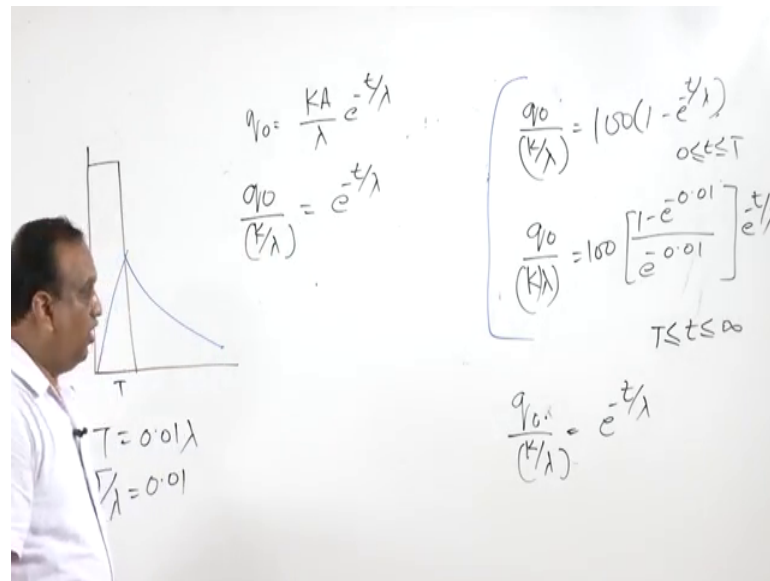 q₀ = KA/λ e^-t/λ
q₀/(K/λ) = e^-t/λ
T
T = 0.01λ
T/λ = 0.01
q₀/(K/λ) = 100(1 - e^-t/λ)
0 ≤ t ≤ T
q₀/(K/λ) = 100 [1 - e^-0.01 / e^-0.01] e^-t/
T ≤ t ≤ ∞
q₀/(K/λ) = e^-t/λ